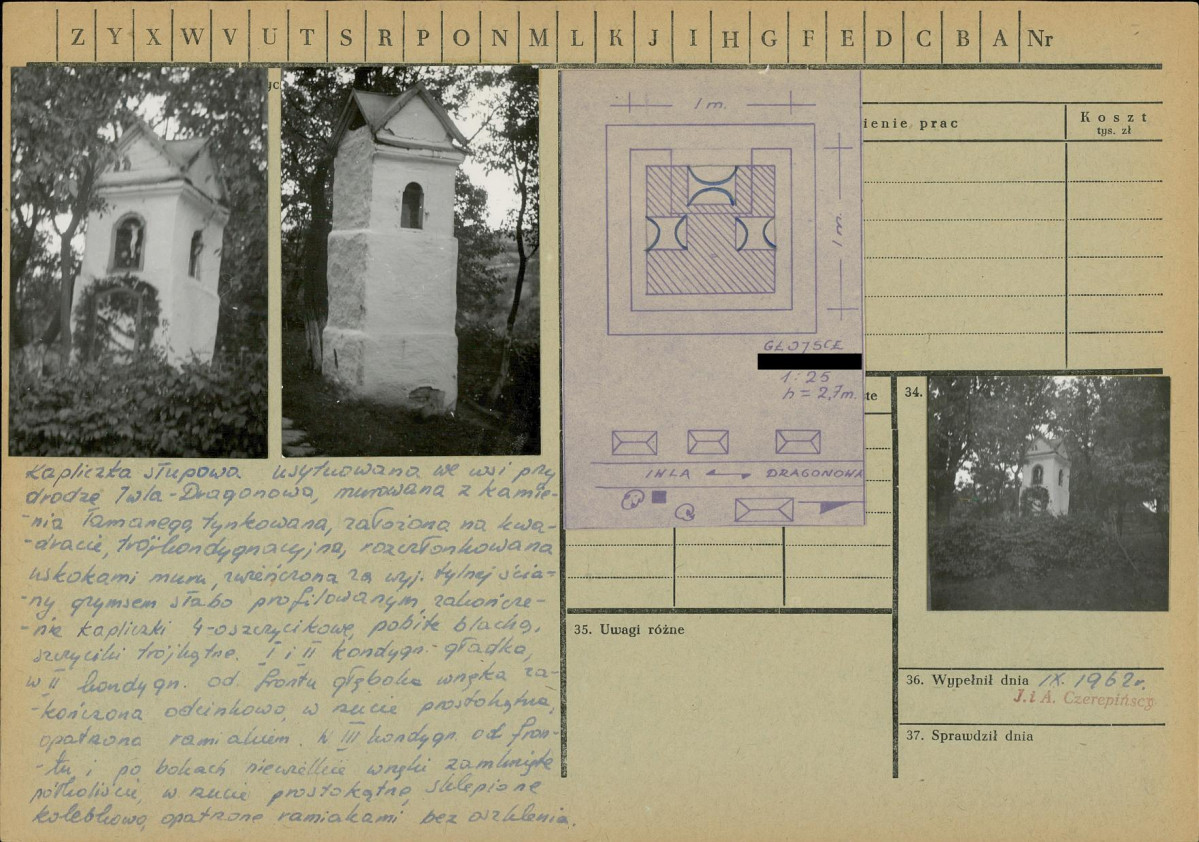 Z Y X W V U T S R P O N M L K J I H G F E D C B A Nr
yc
1 m.
1 m.
ienie prac
Koszt
tys. zł
GŁOJSCE
1:25
h = 2,7 m.
te
34.
IWLA ⟷ DRAGONOWA
Kapliczka słupowa usytuowana we wsi przy
drodze Iwla-Dragonowa, murowana z kamie-
-nia łamanego, tynkowana, założona na kwa-
-dracie, trójkondygnacyjna, rozczłonkowana
uskokami muru, zwieńczona za wyj. tylnej ścia-
-ny gzymsem słabo profilowanym, zakończe-
-nie kapliczki 4-oszczycikowe, pobite blachą,
szczyciki trójkątne. I i II kondygn. gładka,
w II kondygn. od frontu głęboka wnęka za-
-kończona odcinkowo, w rzucie prostokątna,
opatrzona ramiakiem. W III kondygn. od fron-
-tu i po bokach niewielkie wnęki zamknięte
półkoliście, w rzucie prostokątne, sklepione
kolebkowo, opatrzone ramiakami bez oszklenia.
35. Uwagi różne
36. Wypełnił dnia IX. 1962 r.
J. i A. Czerepińscy
37. Sprawdził dnia